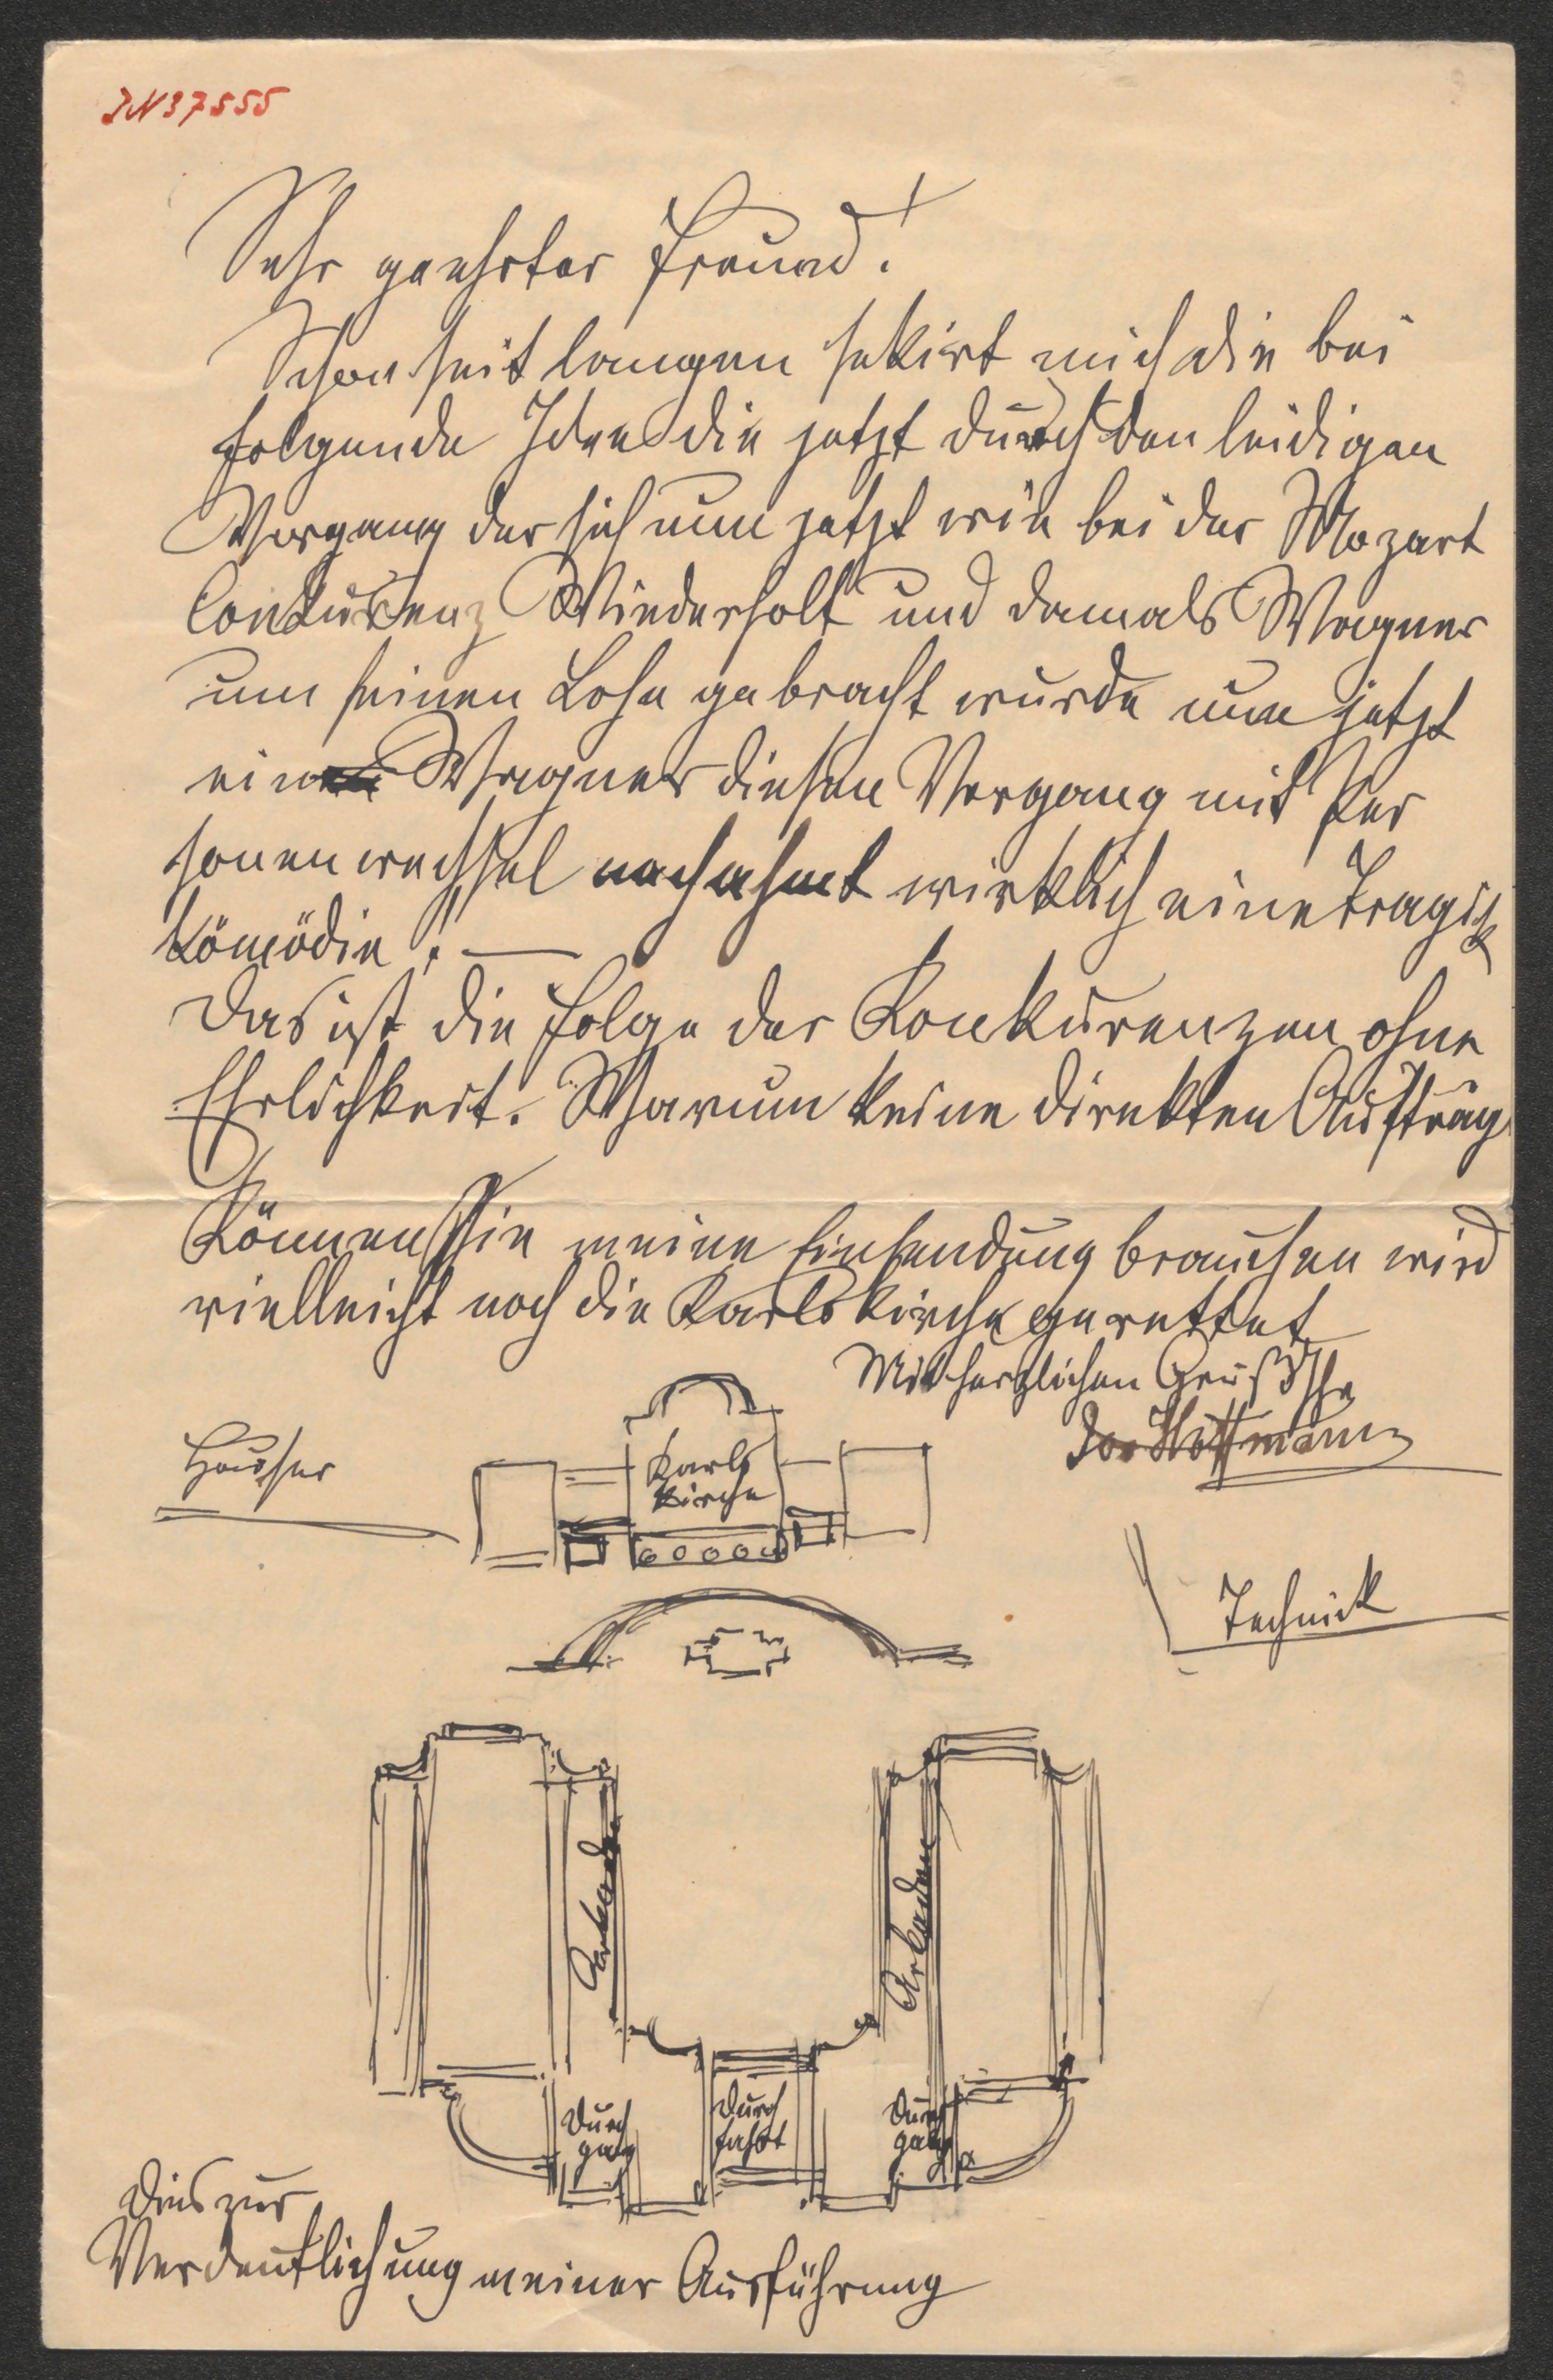 JN 37555
Sehr geehrter Freund!
Schon seit langen sekirt mich die bei
folgende Idee die jetzt durch den leidigen
Vorgang der sich nun jetzt wie bei der Mozart
Conkurenz Wiederholt und damals Wagner
um seinen Lohn gebracht wurde nun jetzt
ein Wagner diesen Vorgang mit Per
sonenwechsel nachahmt wirklich eine Tragisch
Kömödie! —
Das ist die Folge der Konkurenzen ohne
Ehrlichkeit. Warum keine direkten Aufträg
Können Sie meine Einsendung brauchen wird
vielleicht noch die Karlskirche gerettet
Mit herzlichen Gruß Ihr
Jos Hoffmann
Häuser
Karls
Kirche
Technick
Arkaden
Arkaden
Durch
gang
Durch
fahrt
Durch
gang
Dies zur
Verdeutlichung meiner Ausführung